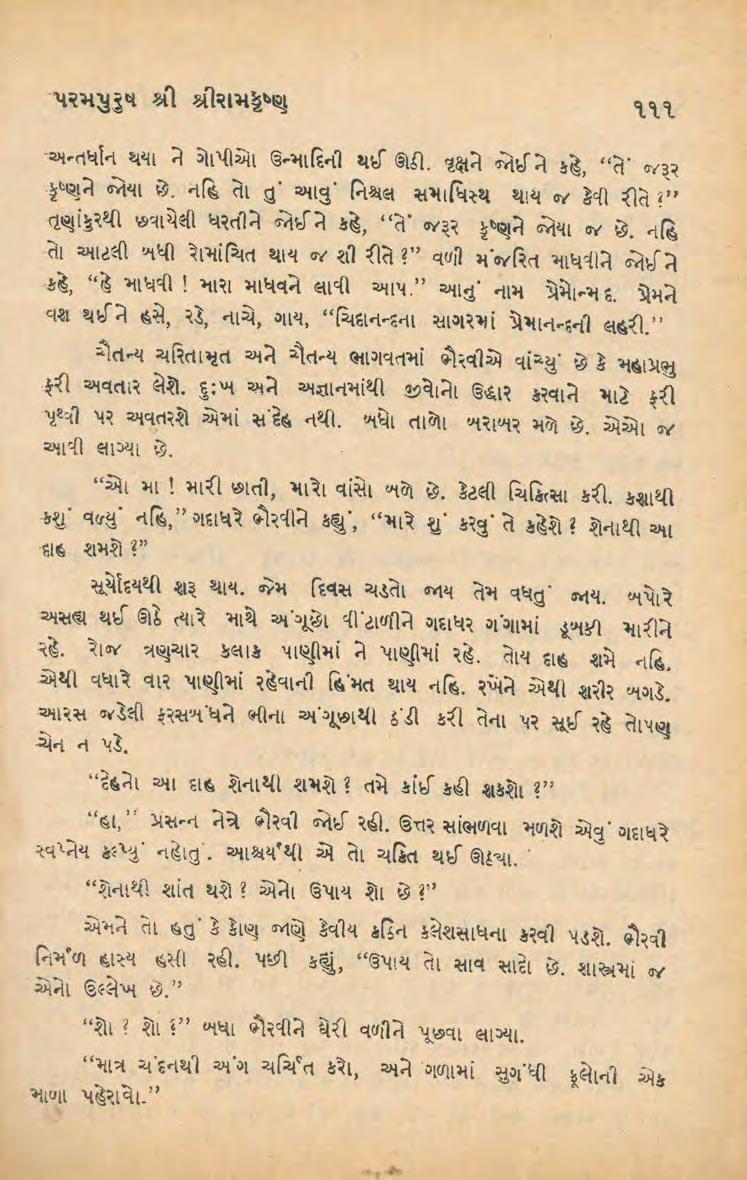 પરમપુરુષ શ્રી શ્રીરામકૃષ્ણ ૧૧૧
અન્તર્ધાન થયા ને ગોપીઓ ઉન્માદિની થઈ ઊઠી. વૃક્ષને જોઈને કહે, “તેં જરૂર
કૃષ્ણને જોયા છે. નહિ તો તું આવું નિશ્ચલ સમાધિસ્થ થાય જ કેવી રીતે ?”
તૃણાંકુરથી છવાયેલી ધરતીને જોઈને કહે, “તેં જરૂર કૃષ્ણને જોયા જ છે. નહિ
તો આટલી બધી રોમાંચિત થાય જ શી રીતે ?” વળી મંજરિત માધવીને જોઈને
કહે, “હે માધવી ! મારા માધવને લાવી આપ.” આનું નામ પ્રેમોન્મદ. પ્રેમને
વશ થઈને હસે, રડે, નાચે, ગાય, “ચિદાનન્દના સાગરમાં પ્રેમાનન્દની લહરી.”
ચૈતન્ય ચરિતામૃત અને ચૈતન્ય ભાગવતમાં ભૈરવીએ વાંચ્યું છે કે મહાપ્રભુ
ફરી અવતાર લેશે. દુઃખ અને અજ્ઞાનમાંથી જીવોનો ઉદ્ધાર કરવાને માટે ફરી
પૃથ્વી પર અવતરશે એમાં સંદેહ નથી. બધો તાળો બરાબર મળે છે. એઓ જ
આવી લાગ્યા છે.
“ઓ મા ! મારી છાતી, મારો વાંસો બળે છે. કેટલી ચિકિત્સા કરી. કશાથી
કશું વળ્યું નહિ,” ગદાધરે ભૈરવીને કહ્યું, “મારે શું કરવું તે કહેશો ? શેનાથી આ
દાહ શમશે ?”
સૂર્યોદયથી શરૂ થાય. જેમ દિવસ ચડતો જાય તેમ વધતું જાય. બપોરે
અસહ્ય થઈ ઊઠે ત્યારે માથે અંગૂછો વીંટાળીને ગદાધર ગંગામાં ડૂબકી મારીને
રહે. રોજ ત્રણચાર કલાક પાણીમાં ને પાણીમાં રહે. તોય દાહ શમે નહિ.
એથી વધારે વાર પાણીમાં રહેવાની હિંમત થાય નહિ. રખેને એથી શરીર બગડે.
આરસ જડેલી ફરસબંધને ભીના અંગૂછાથી ઠંડી કરી તેના પર સૂઈ રહે તોપણ
ચેન ન પડે.
“દેહનો આ દાહ શેનાથી શમશે ? તમે કાંઈ કહી શકશો ?”
“હા,” પ્રસન્ન નેત્રે ભૈરવી જોઈ રહી. ઉત્તર સાંભળવા મળશે એવું ગદાધરે
સ્વપ્નેય કલ્પ્યું નહોતું. આશ્ચર્યથી એ તો ચકિત થઈ ઊઠ્યા.
“શેનાથી શાંત થશે ? એનો ઉપાય શો છે ?”
એમને તો હતું કે કોણ જાણે કેવીય કઠિન કલેશસાધના કરવી પડશે. ભૈરવી
નિર્મળ હાસ્ય હસી રહી. પછી કહ્યું, “ઉપાય તો સાવ સાદો છે. શાસ્ત્રમાં જ
એનો ઉલ્લેખ છે.”
“શો ? શો ?” બધા ભૈરવીને ઘેરી વળીને પૂછવા લાગ્યા.
“માત્ર ચંદનથી અંગ ચર્ચિત કરો, અને ગળામાં સુગંધી ફૂલોની એક
માળા પહેરાવો.”